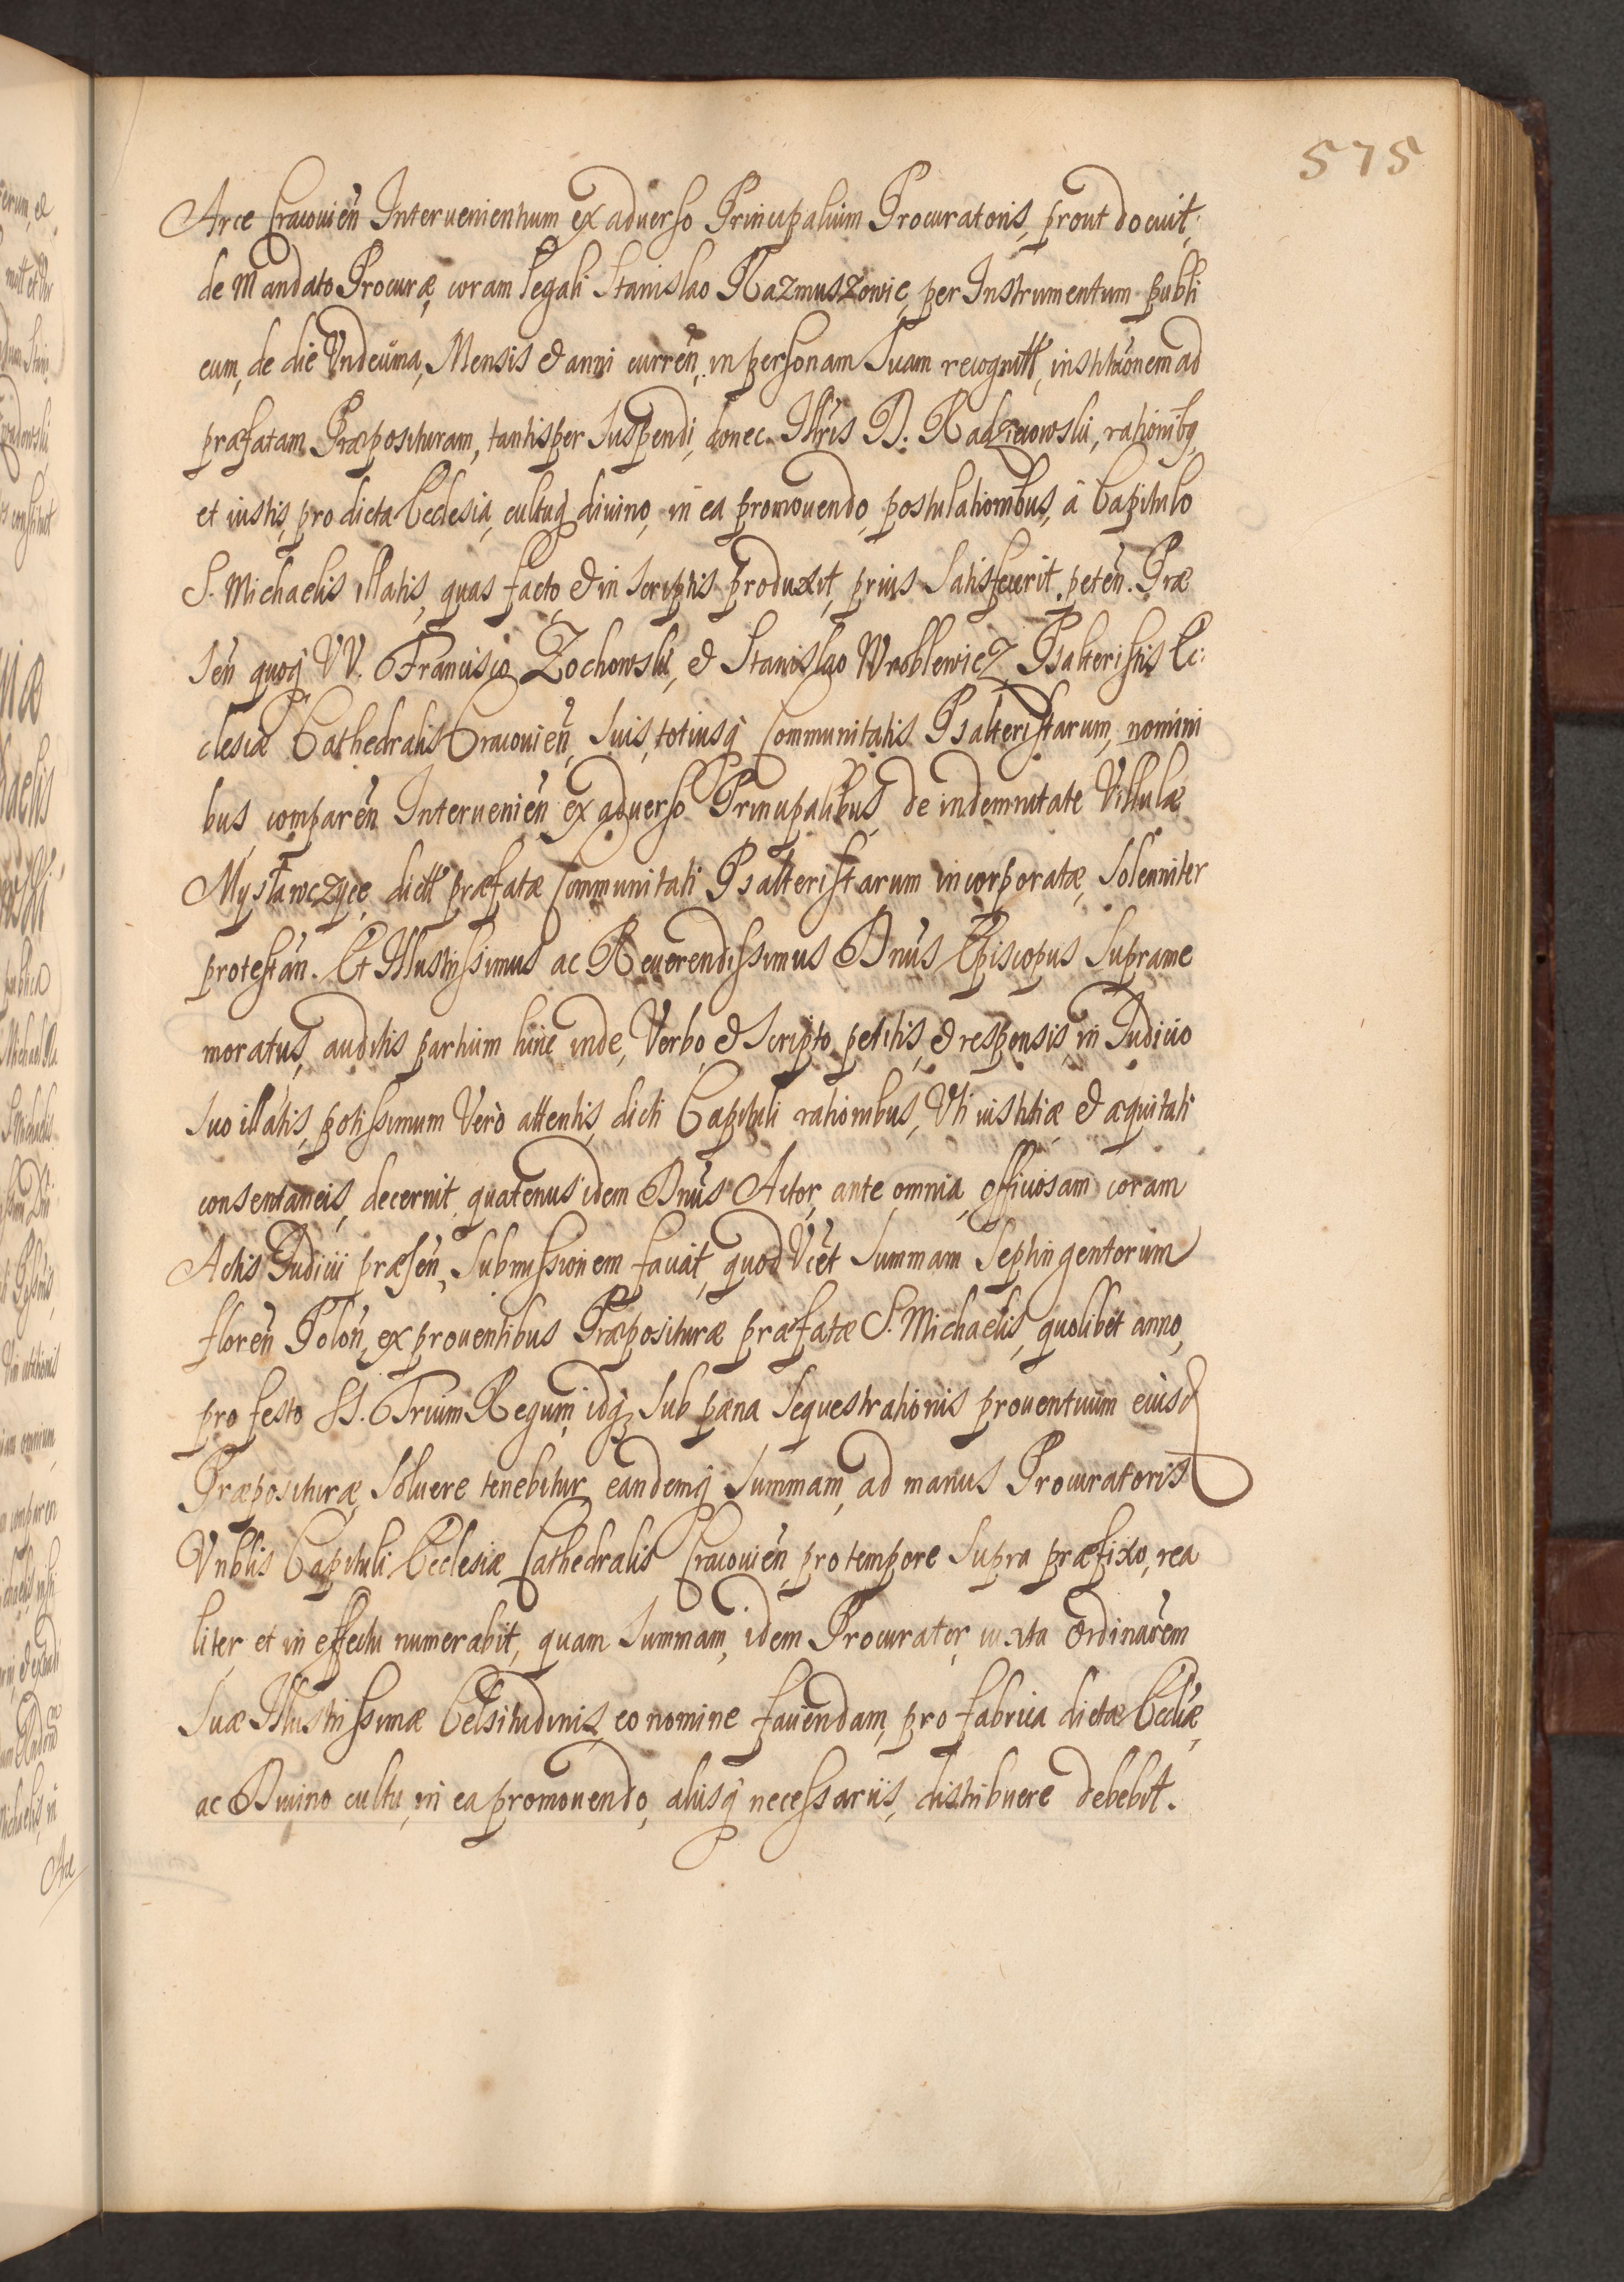 575
Arce Cracouien̄ Interuenientium ex aduerso Principalium Procuratoris, prout docuit,
de Mandato Procuræ, coram legali Stanislao Razmuszowic, per Instrumentum publi
cum, de die Vndecima, Mensis & anni curren̄, in personam Suam recognitt, institūonem ad
præfatam Præposituram, tantisper Suspendi, donec Illr̄is D. Radzieiowski, rationibq,
et iustis, pro dicta Ecclesia, cultuq̨ diuino, in ea promouendo, postulationibus, â Capitulo
S. Michaelis illatis, quas facto & in scriptis produxit, prius Satisfecerit, peten̄. Præ
sen̄ quoq̨ VV. Francisco Zochowski, & Stanislao Wroblewicz, Psalteristis Ec:
clesiæ Cathedralis Cracouien̄, Suis, totiusq̨ Communitatis Psalteristarum, nomini
bus, comparen̄ Interuenien̄ ex aduerso Principalibus, de indemnitate Villulæ
Mysławczyce, dictt præfatæ Communitati Psalteristarum incorporatæ, Solenniter
protestan̄. Et Illustrissimus ac Reuerendissimus Dn̄us Episcopus Suprame
moratus, auditis partium hinc inde, Verbo & Scripto, petitis, & responsis, in Iudicio
Suo illatis, potissimum Verò attentis, dicti Capituli rationibus, Vti iustitiæ & æquitati
consentaneis, decernit, quatenus idem Dn̄us Actor, ante omnia, officiosam coram
Actis Iudicii præsen̄, Submissionem faciat, quod Vīēt Summam Septingentorum
floren̄ Polon̄, ex prouentibus Præpositturæ præfatæ S. Michaelis, quolibet anno,
pro festo SS. Trium Regum, idq̨, Sub pæna Sequestrationis prouentuum eiusd
Præposituræ, Soluere tenebitur, eandemq̨ Summam, ad manus Procuratoris
Vn̄blis Capituli Ecclesiæ Cathedralis Cracouien̄, pro tempore Supra præfixo, rea
liter et in effectu numerabit, quam Summam, idem Procurator, iuxta Ordināōem
Suæ Illustrissimæ Celsitudinis, eo nomine faciendam, pro fabrica dictæ Eccl̄iæ,
ac Diuino cultu, in ea promouendo, aliisq̨ necessariis, distribuere debebit.